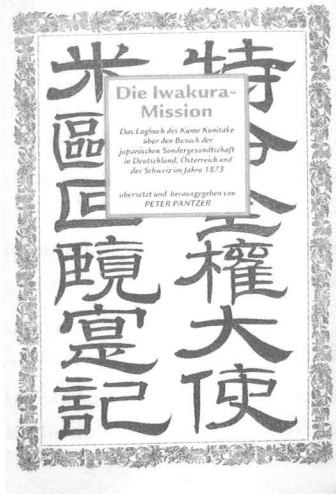 特命全權大使
米歐回覽寔記
Die Iwakura-
Mission
Das Logbuch des Kume Kunitake
über den Besuch der
japanischen Sondergesandtschaft
in Deutschland, Österreich und
der Schweiz im Jahre 1873
übersetzt und herausgegeben von
PETER PANTZER